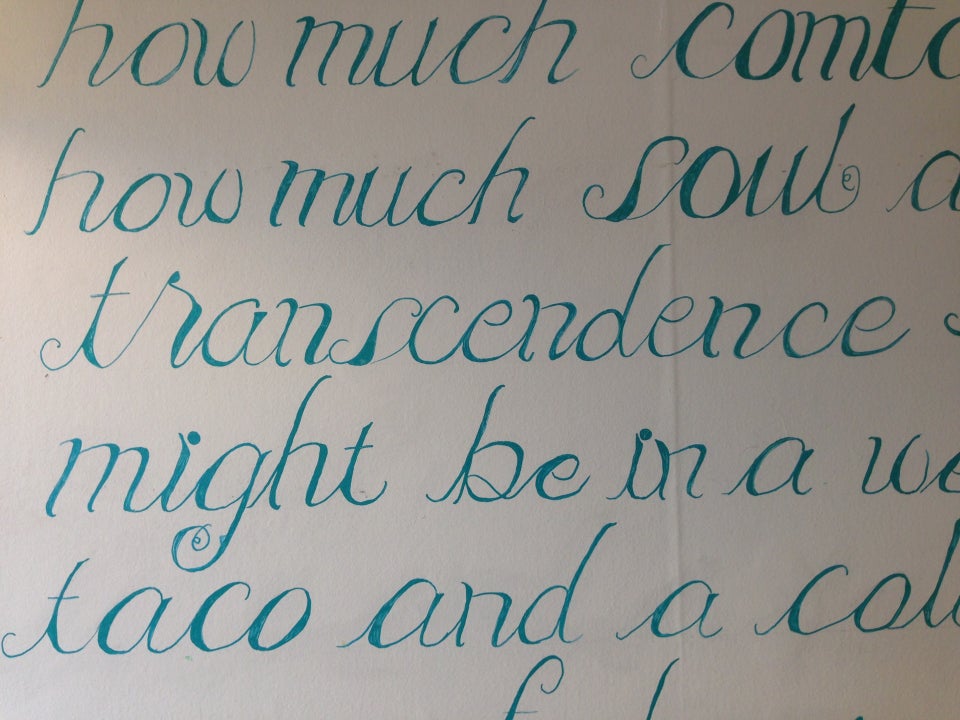 how much
how much soul
transcendence
might be in a
taco and a